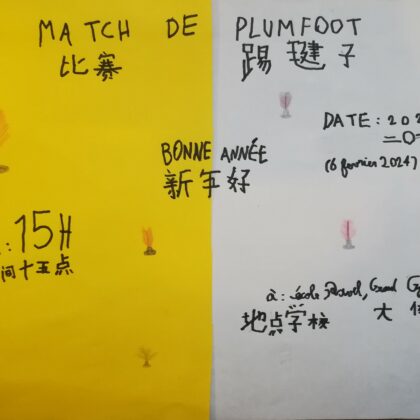 MATCH DE PLUMFOOT
比赛 踢毽子
DATE : 202
二〇
(6 février 2024)
BONNE ANNÉE
新年好
: 15H
间十五点
à : école Grand
地点学校 大